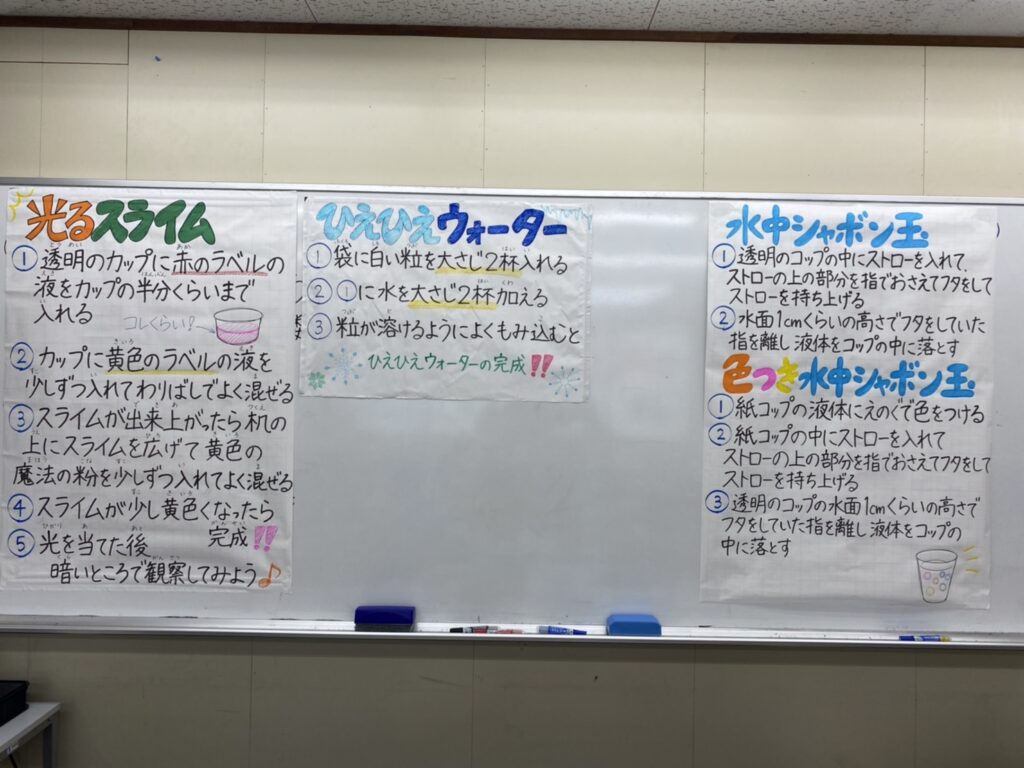 光るスライム
①透明のカップに赤のラベルの
液をカップの半分くらいまで
入れる
コレくらい?
②カップに黄色のラベルの液を
少しずつ入れてわりばしでよく混ぜる
③スライムが出来上がったら机の
上にスライムを広げて黄色の
魔法の粉を少しずつ入れてよく混ぜる
④スライムが少し黄色くなったら
完成!!
⑤光を当てた後
暗いところで観察してみよう♪
ひえひえウォーター
①袋に白い粒を大さじ2杯入れる
②①に水を大さじ2杯加える
③粒が溶けるようによくもみ込むと
ひえひえウォーターの完成!!
水中シャボン玉
①透明のコップの中にストローを入れて、
ストローの上の部分を指でおさえてフタをして
ストローを持ち上げる
②水面1cmくらいの高さでフタをしていた
指を離し液体をコップの中に落とす
色つき水中シャボン玉
①紙コップの液体にえのぐで色をつける
②紙コップの中にストローを入れて
ストローの上の部分を指でおさえてフタをして
ストローを持ち上げる
③透明のコップの水面1cmくらいの高さで
フタをしていた指を離し液体をコップの
中に落とす